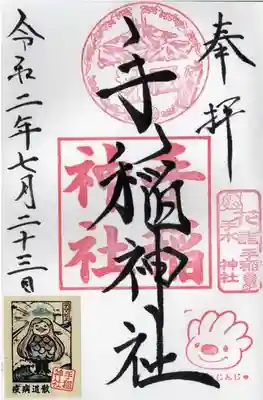 奉拝
手稲神社
手稲神社
手稲
神社
じんじ
令和二年七月二十三日
疫病退散
手稲神社